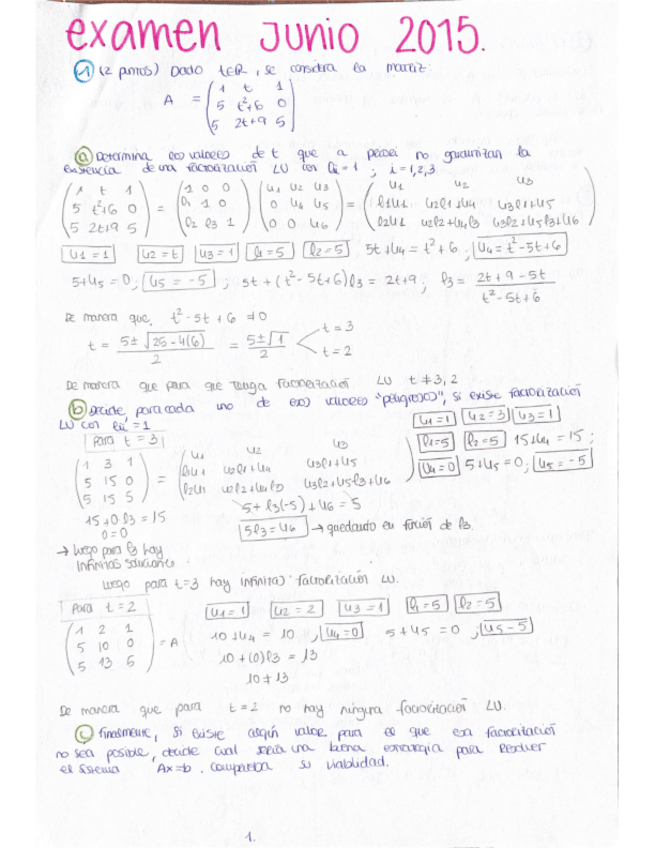 examen Junio 2015.
1 (2 puntos) Dado t∈R, se considera la matriz:
A = (1 t 1
5 t²+6 0
5 2t+9 5)
a Determina los valores de t que a priori no garantizan la
existencia de una factorización LU con lii = 1 ; i = 1,2,3
(1 t 1) (1 0 0) (u1 u2 u3) (u1 u2 u3)
(5 t²+6 0) = (l1 1 0) (0 u4 u5) = (l1u1 u2l1+u4 u3l1+u5)
(5 2t+9 5) (l2 l3 1) (0 0 u6) (l2u1 u2l2+u4l3 u3l2+u5l3+u6)
u1 = 1 u2 = t u3 = 1 l1 = 5 l2 = 5 5t+u4 = t²+6 ; u4 = t²-5t+6
5+u5 = 0 ; u5 = -5 ; 5t + (t²-5t+6)l3 = 2t+9 ; l3 = (2t+9-5t)/(t²-5t+6)
De manera que, t²-5t+6 ≠ 0
t = (5± √(25-4(6)))/2 = (5±√1)/2 t = 3
t = 2
De manera que para que tenga factorización LU t ≠ 3, 2
b Decide, para cada uno de esos valores "peligrosos", si existe factorización
LU con lii = 1
u1=1 u2=3 u3=1
Para t = 3
l1=5 l2=5 15+u4 = 15 ;
u4=0 5+u5 = 0 ; u5 = -5
(1 3 1) (u1 u2 u3)
(5 15 0) = (l1u1 u2l1+u4 u3l1+u5)
(5 15 5) (l2u1 u2l2+u4l3 u3l2+u5l3+u6)
5+l3(-5)+u6 = 5
15+0l3 = 15
0=0
5l3 = u6 → quedando en función de l3.
→ Luego para l3 hay
infinitas soluciones
Luego para t=3 hay infinitas factorización LU.
Para t = 2
u1 = 1 u2 = 2 u3 = 1 l1 = 5 l2 = 5
(1 2 1
5 10 0
5 13 5) = A
10+u4 = 10 ; u4=0 5+u5 = 0 ; u5-5
10+(0)l3 = 13
10 ≠ 13
De manera que para t = 2 no hay ninguna factorización LU.
c Finalmente, si existe algún valor para el que esa factorización
no sea posible, decide cual sería una buena estrategia para resolver
el sistema Ax=b. comprueba su viabilidad.
1.